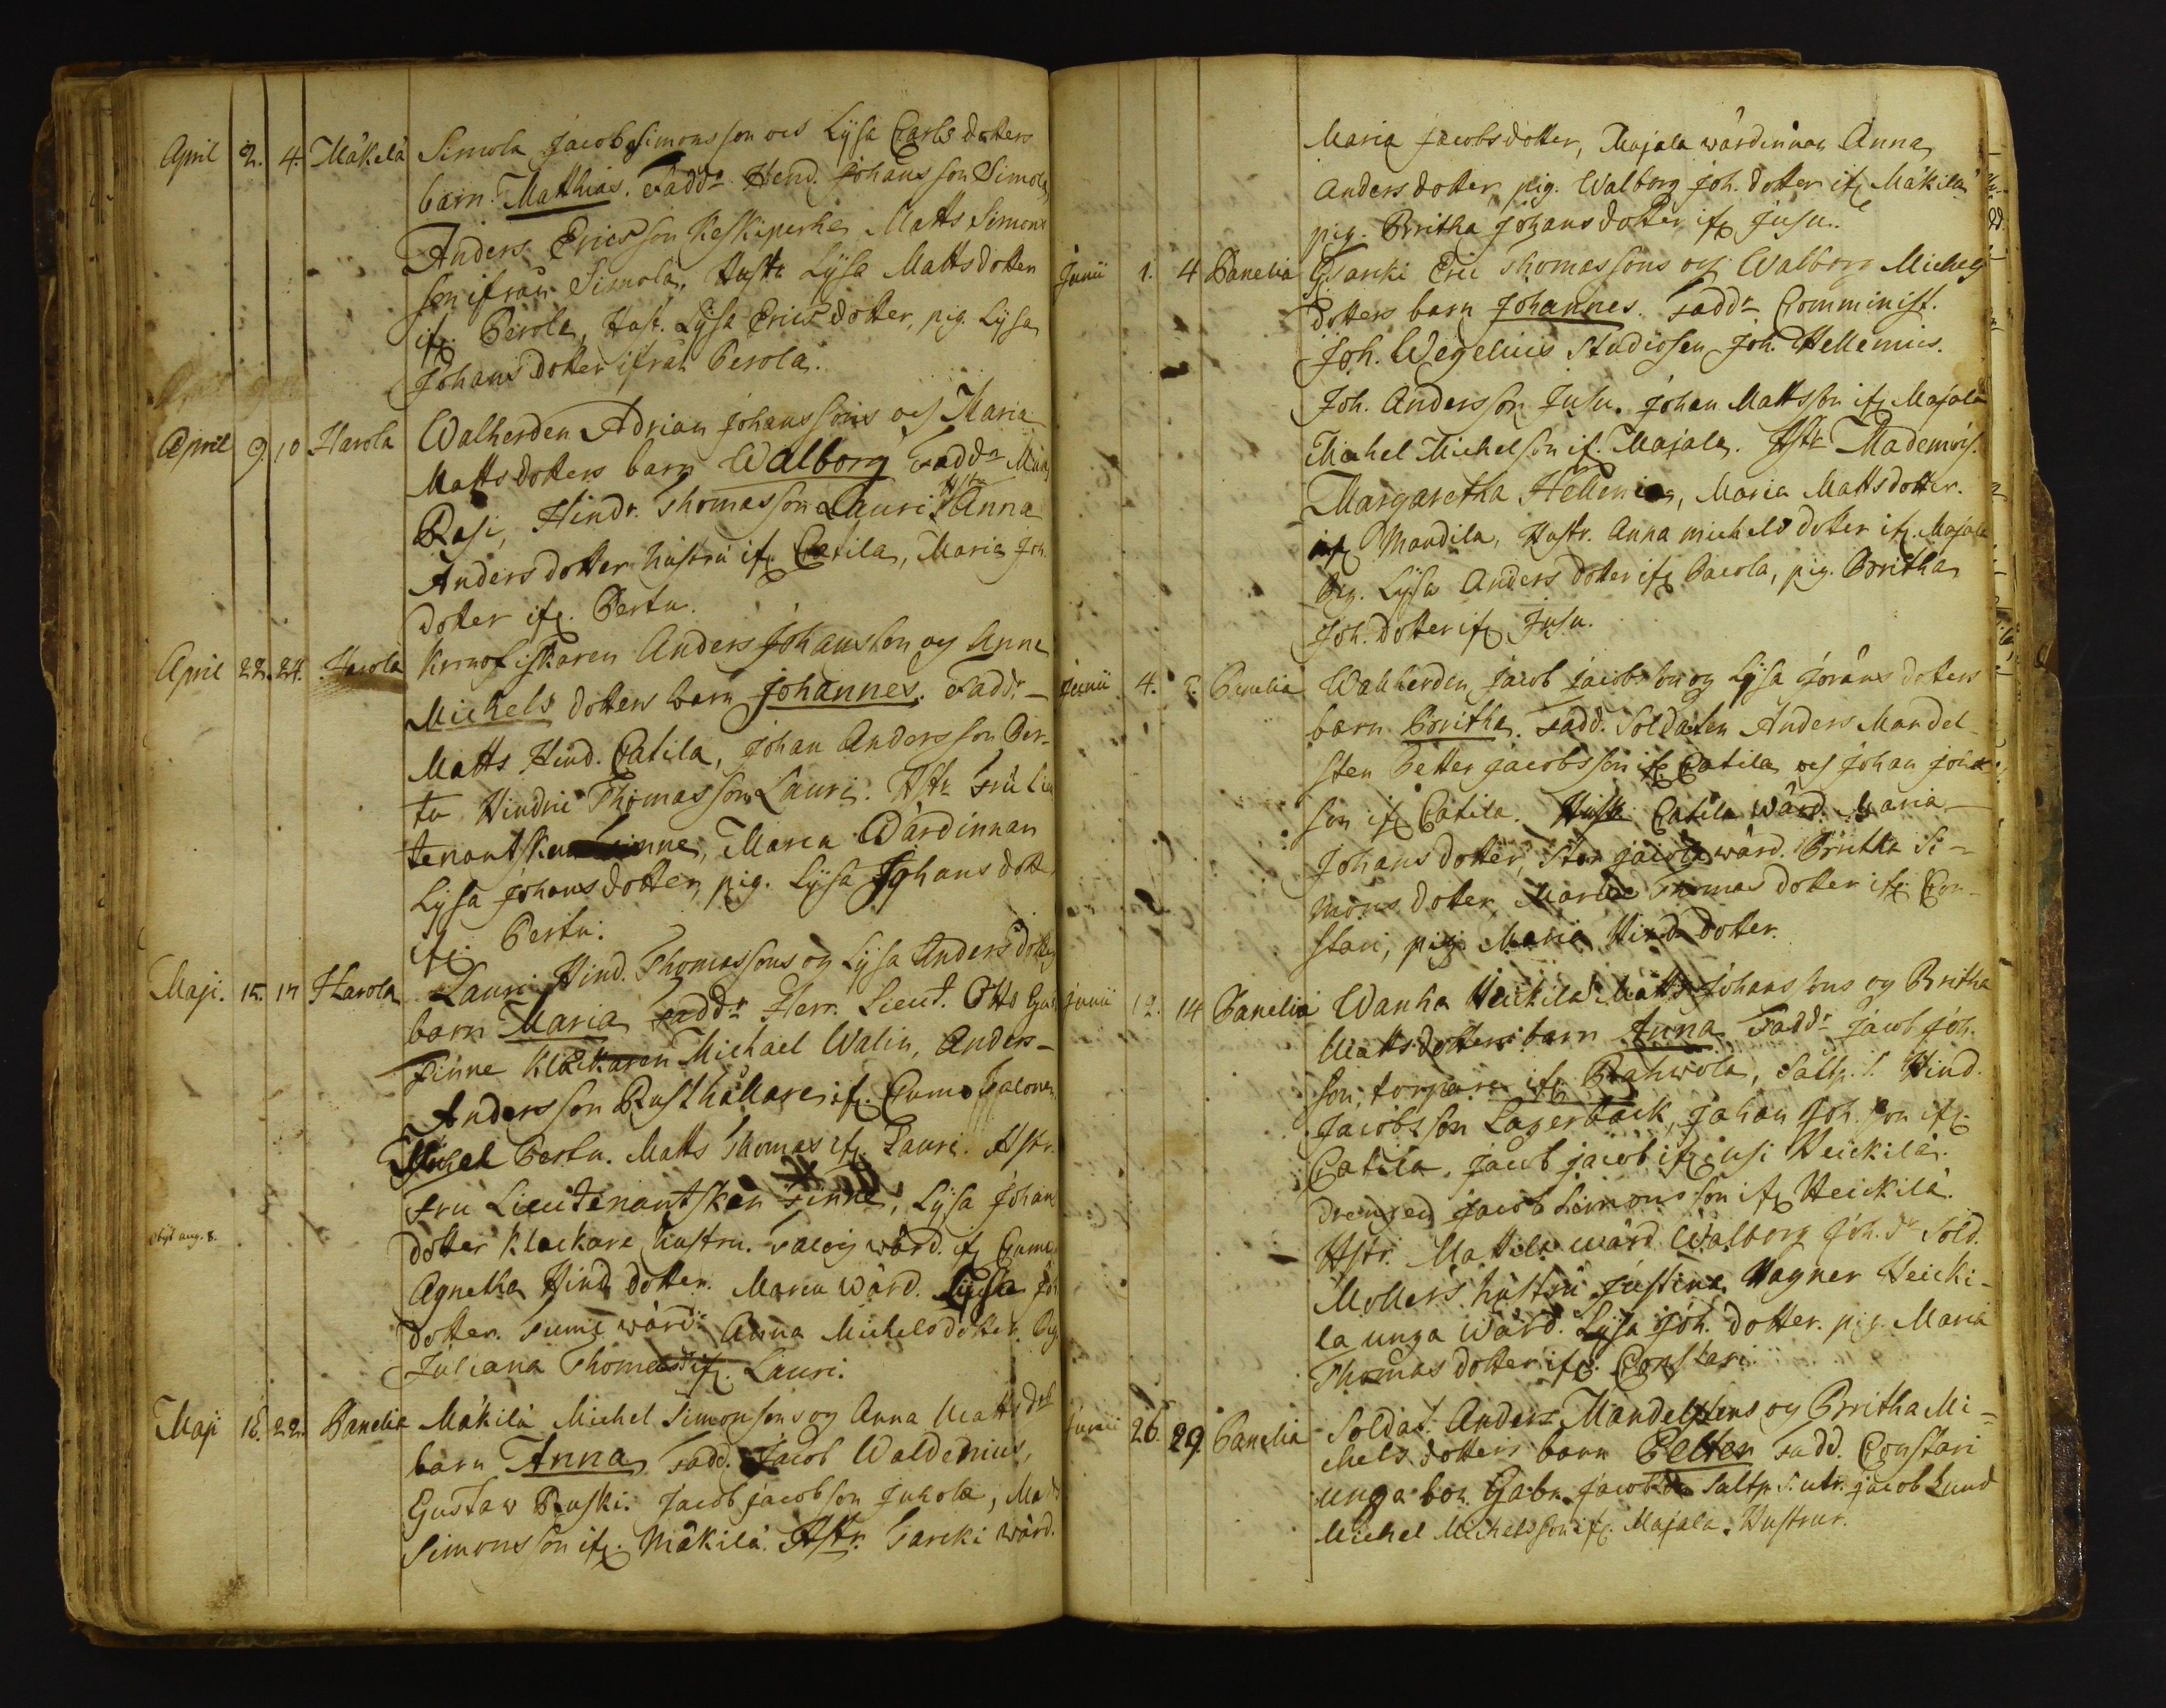 April 2. 4. Mäkelä Simola Jacob Simonsson och Lysa Carls dotters
barn Matthias. Faddr Hend. Johansson Simola
Anders Ericsson Keskiperke Matts Simons
son ifrån Simola, Hustr Lysa Mattsdotter
ifr. Perola, Hust. Lysa Ericsdotter, pig. Lysa
Johansdotter ifrån Perola.
April 9. 10 Harola Walherden Adrian Johanssons och Maria
Mattsdotters barn Walborg Faddr
Rasi, Hindr. Thomasson Lauri Hstr Anna
Andersdotter hustru ifr Catila, Maria Joh.
dotter ifr. Pertu.
April 22. 24. Harola Anders Johansson och Anna
Michels dotters barn Johannes. Faddr
Matts Hind. Catila, Johan Andersson Per-
tu Hindric Thomasson Lauri. Hstr Fru Lieu
tenantskan Finne, Maria Wärdinnan
Lysa Johansdotter, pig. Lysa Johansdotter
ifr Pertu.
Maji. 15. 17 Harola Lauri Hind. Thomassons och Lysa Andersdotters
barn Maria Faddr Herr Lieut. Otto Gus
Finne Klockaren Michael Walin, Anders
Andersson Rusthållare ifr. Eume
Michel Pertu. Matts Thomas ifr. Lauri. Hstr.
Fru Lieutenantskan Finne, Lysa Johans
dotter Klockare hustru. wärd. ifr Eume
obijt aug. 8.
Agnetha Hind dotter. Maria wärd. Lysa Joh
dotter. wärd. Anna Michelsdotter. Pig.
Juliana Thomasd ifr. Lauri.
Maji 16. 22. Panelia Mäkilä Michel Simonsons och Anna Matts dr
barn Anna Fadd. Jacob Waldenius,
Gustaw Ruski. Jacob Jacobson Juhola, Matts
Simonsson ifr. Mäkilä. Hstr. Gareki wärd.
Maria Jacobsdotter, Majala wärdinnan Anna
Andersdotter, pig. Walborg Joh. dotter ifr Mäkilä
pig. Britha Johansdotter ifr Jusu.
Junii 1. 4 Panelia Eric Thomassons och Walborg Michels
dotters barn Johannes. Faddr Comminist.
Joh. Wegelius Studiosen Joh. Hellenius.
Joh. Andersson Jusu. Johan Mattsson ifr Majala
Michel Michelson if. Majala. Hstr Mademois.
Margaretha Hellenia, Maria Mattsdotter.
ifr Mandila, Hustr. Anna Michelsdotter ifr. Majala
Pig. Lysa Andersdotter ifr Pacola, pig. Britha
Joh. dotter ifr Jusu.
Junii 4. Panelia Walherden Jacob Jacobsson och Lysa Jöransdoters
barn Britha. Fadd. Soldaten Anders Mandel-
sten Petter Jacobsson ifr Catila och Johan Johan
son ifr Catila. Hustr. Catila Wärd. Maria
Johansdotter, Stor wärd. Britha Si-
monsdotter Maria Thomasdotter ifr Con-
stari, pig. Maria Hind. dotter.
Junii 12. 14 Panelia Wanha Heickilä Matts Johanssons och Britha
Mattsdotters barn Anna Faddr Jacob Joh.
son, torpare ifr Rahwola, Sältp.f. Hind.
Jacobsson Lagerbäck, Johan Joh. son ifr
Catila. Jacob Jacob ifr Usi Heickilä.
Drengen Jacob Simonsson ifr Heickilä.
Hstr. Mattila wärd Walborg Joh. dr Sold.
Mollers hustru Justina Wagner Heicki-
la unga wärd. Lysa Joh. dotter. pig. Maria
Thomas dotter ifr Constari.
Junii 26. 29. Panelia Soldat. Anders Mandelstens och Britha Mi-
chels dotters barn Petter Fadd. Constari
unga bon. Gabr. Jacobson Jacob Lund
Michel Michelsson ifr. Majala. Hustrur.